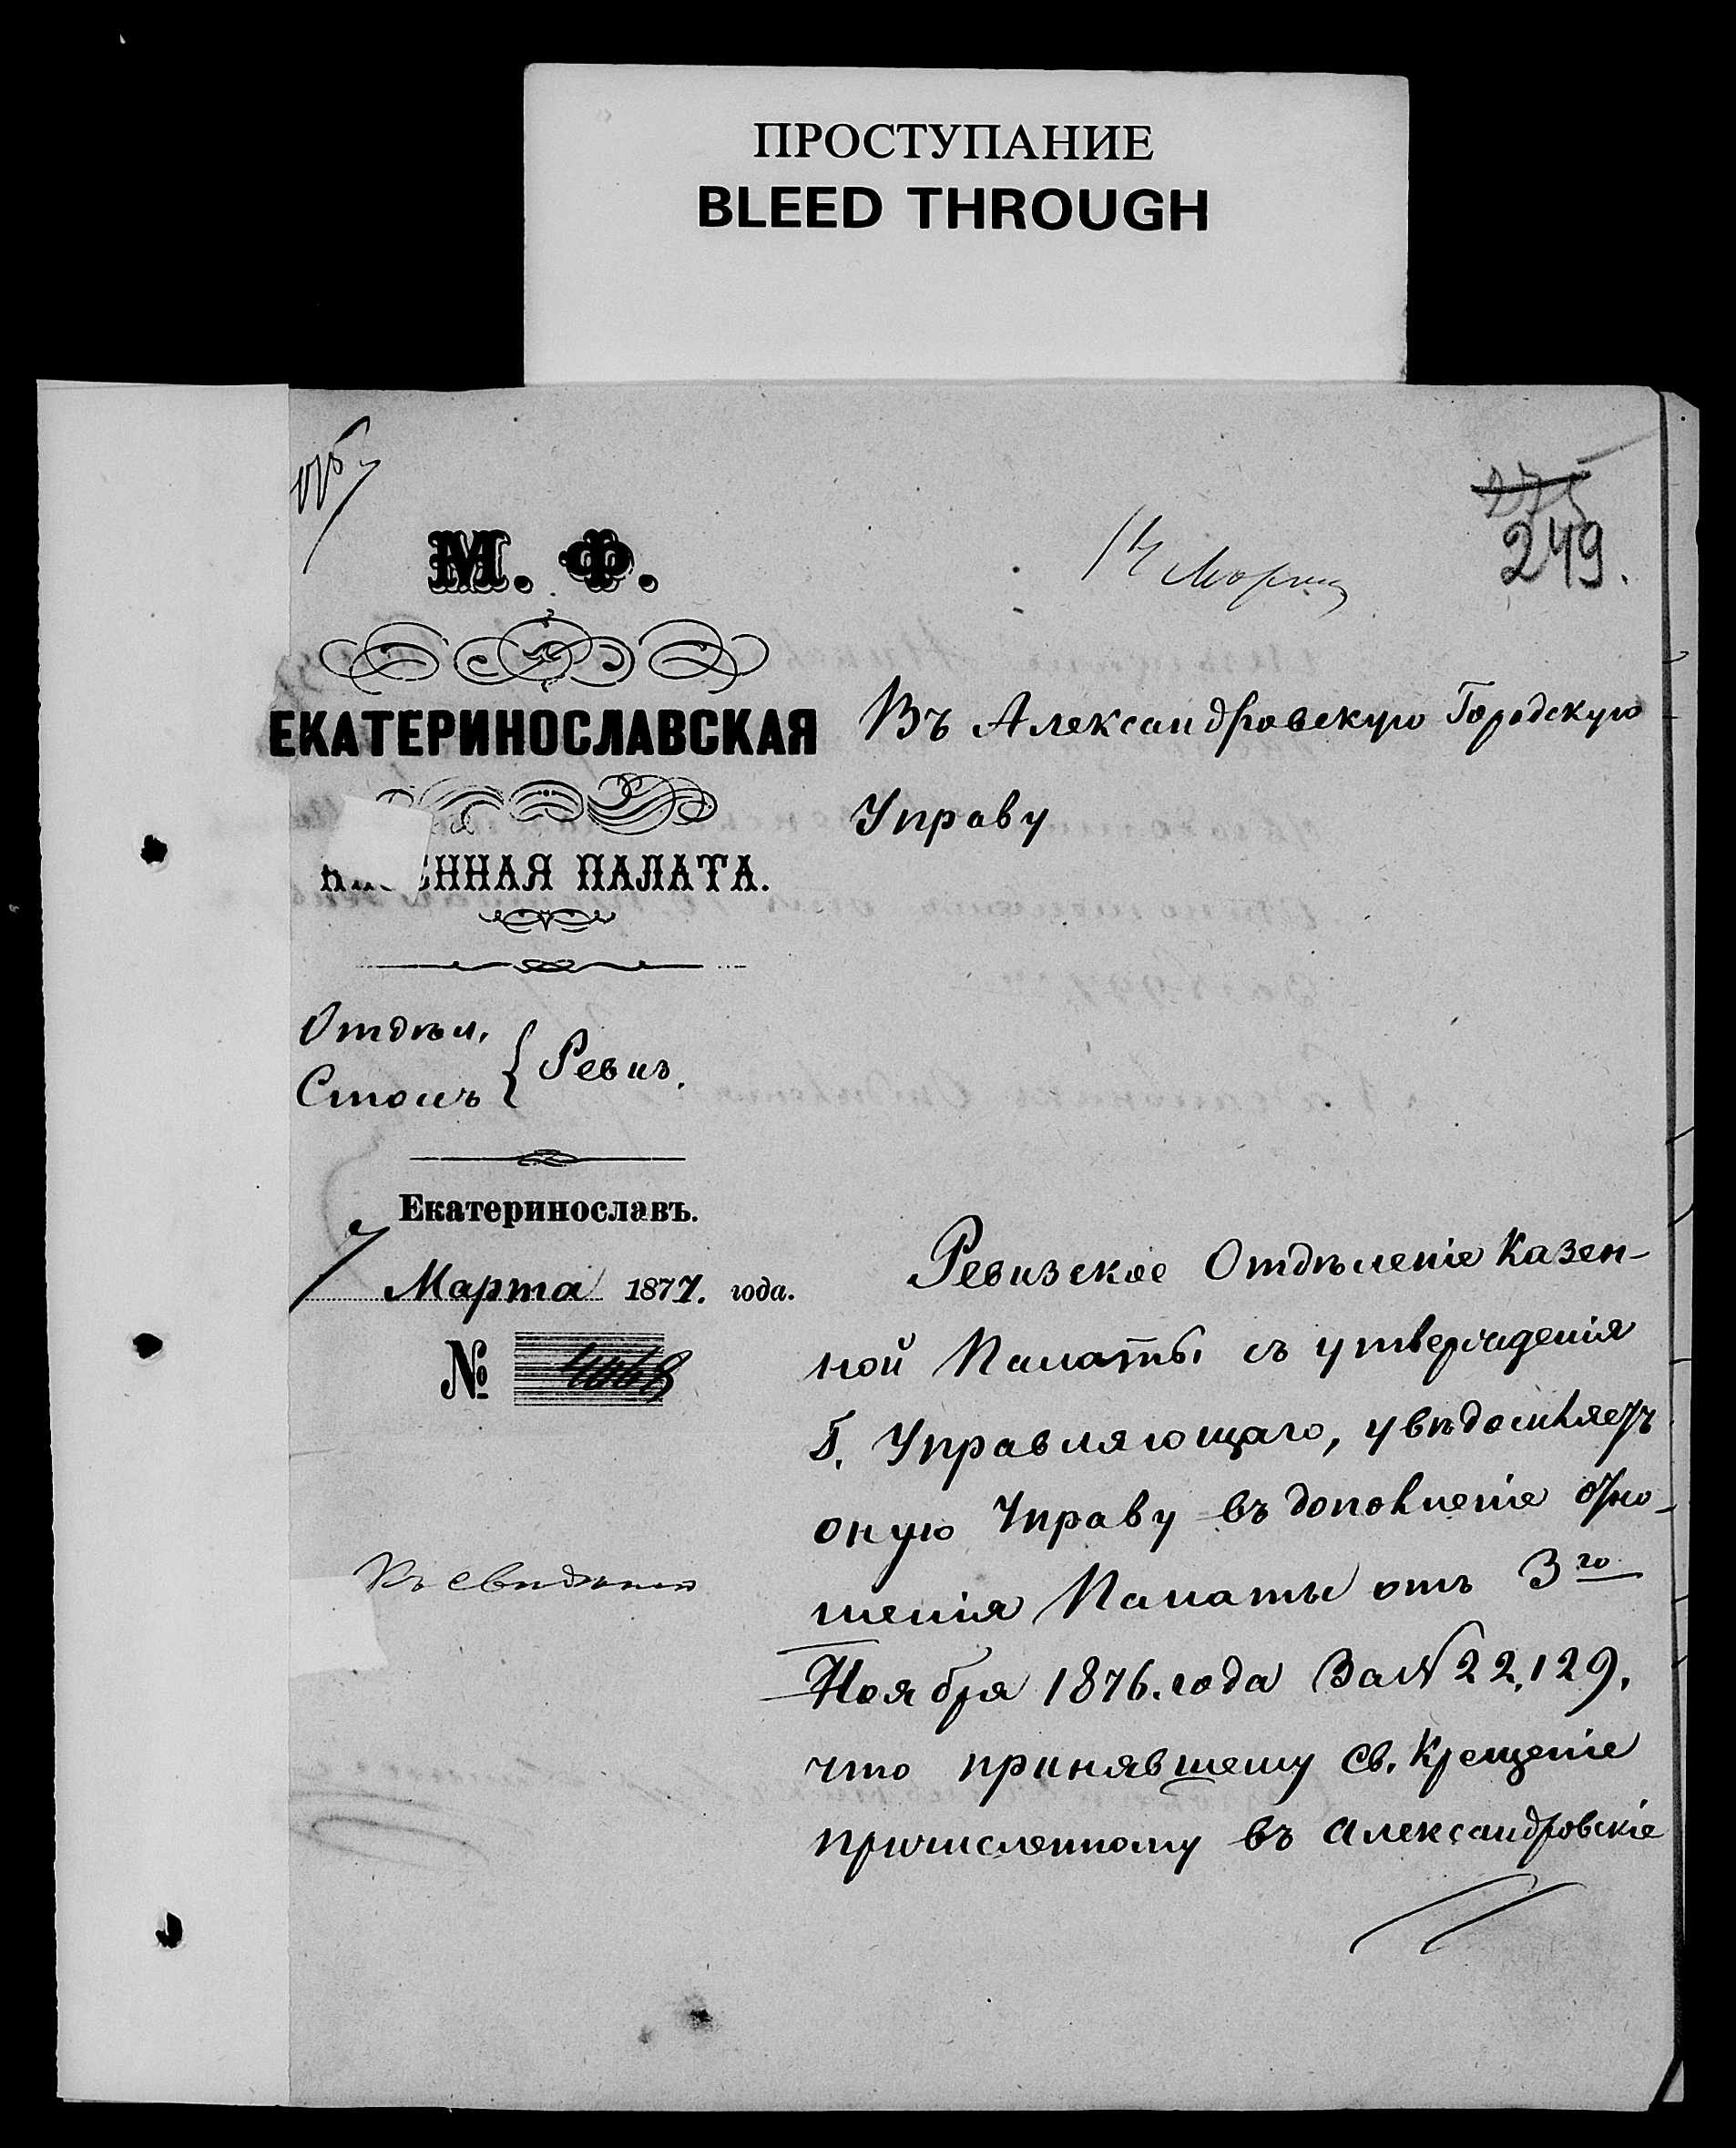 ПРОСТУПАНИЕ
BLEED THROUGH
249.
М. Ф.
ЕКАТЕРИНОСЛАВСКАЯ
ЕННАЯ ПАЛАТА.
Отдѣл.
Столъ
Ревиз.
Екатеринославъ.
7 Марта 1877. года.
№
Въ Александровскую Городскую
Управу
Ревизское Отдѣленіе Казен-
ной Палаты съ утвержденія
Г. Управляющаго, увѣдомляетъ
оную Управу въ дополненіе отно-
шенія Палаты отъ 3го
Ноября 1876. года За N 22,129.
что принявшему Св. Крещеніе
причисленному въ Александровскіе